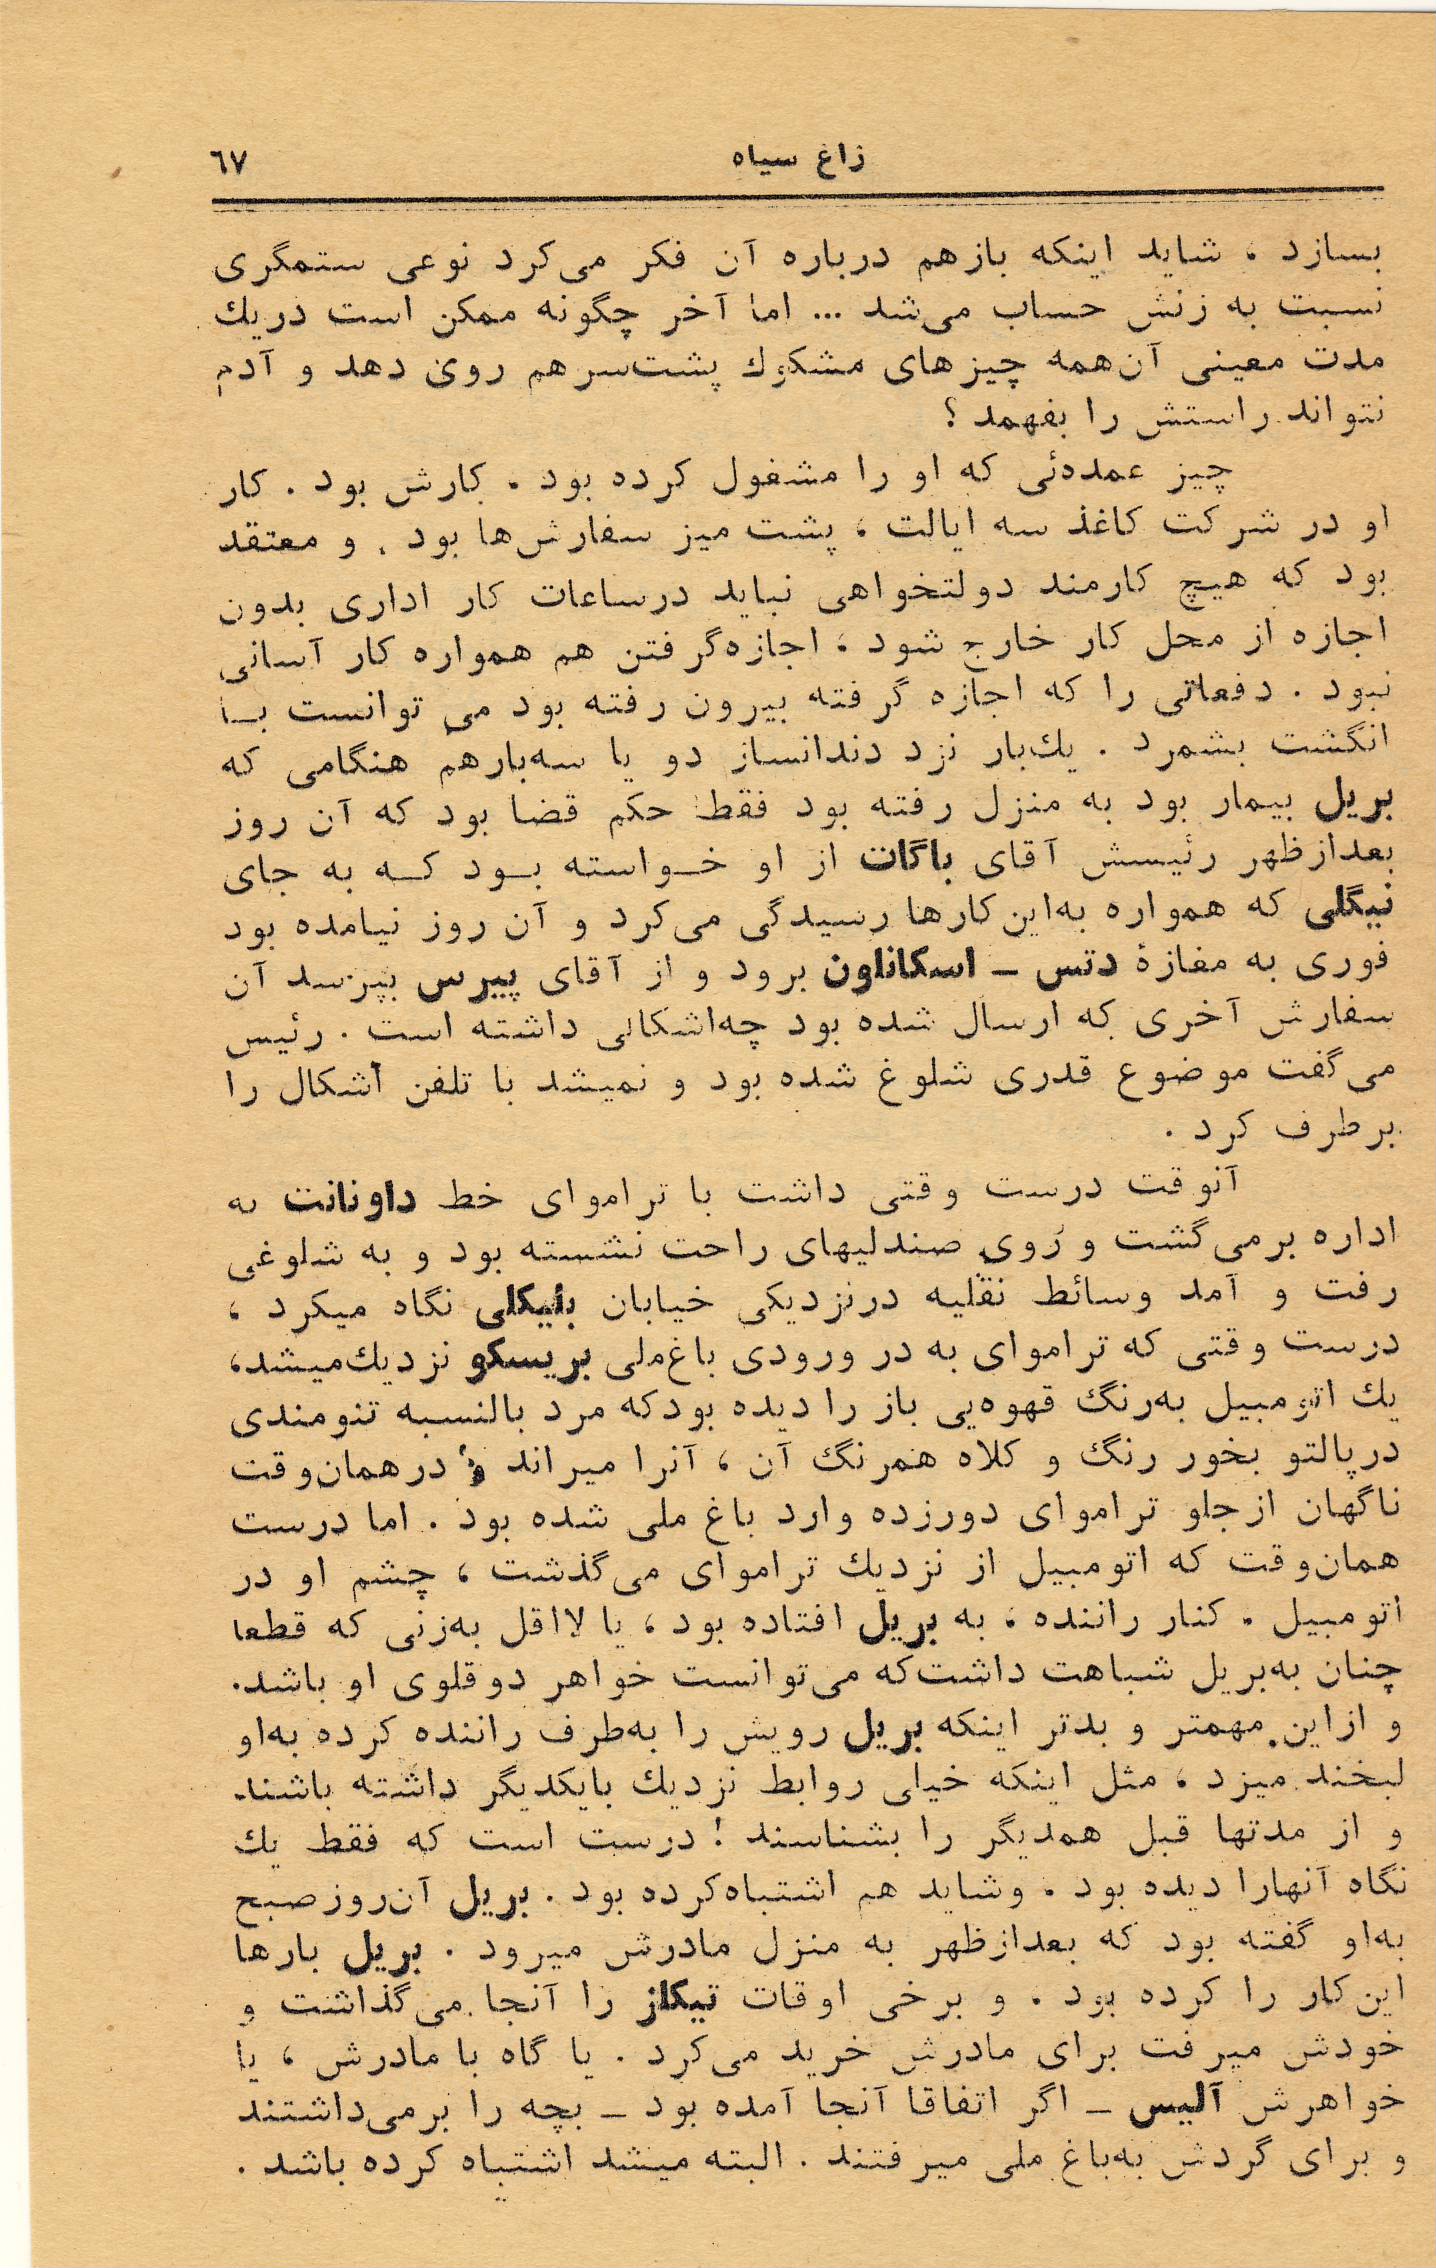 زاغ سیاه ٦٧
بسازد ، شاید اینکه بازهم درباره آن فکر می‌کرد نوعی ستمگری
نسبت به زنش حساب می‌شد ... اما آخر چگونه ممکن است دریك
مدت معینی آن‌همه چیزهای مشکوك پشت‌سرهم روی دهد و آدم
نتواند راستش را بفهمد ؟
چیز عمده‌ئی که او را مشغول کرده بود . کارش بود . کار
او در شرکت کاغذ سه ایالت ، پشت میز سفارش‌ها بود . و معتقد
بود که هیچ کارمند دولتخواهی نباید درساعات کار اداری بدون
اجازه از محل کار خارج شود ، اجازه‌گرفتن هم همواره کار آسانی
نبود . دفعاتی را که اجازه گرفته بیرون رفته بود می توانست بـا
انگشت بشمرد . یك‌بار نزد دندانساز دو یا سه‌بارهم هنگامی که
بریل بیمار بود به منزل رفته بود فقط حکم قضا بود که آن روز
بعدازظهر رئیسش آقای باگات از او خـواسته بـود کـه به جای
نیگلی که همواره به‌این کارها رسیدگی می‌کرد و آن روز نیامده بود
فوری به مغازهٔ دتس ـ اسکاناون برود و از آقای پیرس بپرسد آن
سفارش آخری که ارسال شده بود چه‌اشکالی داشته است . رئیس
می‌گفت موضوع قدری شلوغ شده بود و نمیشد با تلفن اشکال را
برطرف کرد .
آنوقت درست وقتی داشت با تراموای خط داونانت به
اداره برمی‌گشت و روی صندلیهای راحت نشسته بود و به شلوغی
رفت و آمد وسائط نقلیه درنزدیکی خیابان بلیکلی نگاه میکرد ،
درست وقتی که تراموای به در ورودی باغ‌ملی بریسکو نزدیك‌میشد،
یك اتومبیل به‌رنگ قهوه‌یی باز را دیده بودکه مرد بالنسبه تنومندی
درپالتو بخور رنگ و کلاه همرنگ آن ، آنرا میراند و درهمان‌وقت
ناگهان ازجلو تراموای دورزده وارد باغ ملی شده بود . اما درست
همان‌وقت که اتومبیل از نزدیك تراموای می‌گذشت ، چشم او در
اتومبیل . کنار راننده ، به بریل افتاده بود ، یا لااقل به‌زنی که قطعا
چنان به‌بریل شباهت داشت‌که می‌توانست خواهر دوقلوی او باشد.
و ازاین مهمتر و بدتر اینکه بریل رویش را به‌طرف راننده کرده به‌او
لبخند میزد ، مثل اینکه خیلی روابط نزدیك بایکدیگر داشته باشند
و از مدتها قبل همدیگر را بشناسند ! درست است که فقط یك
نگاه آنهارا دیده بود . وشاید هم اشتباه‌کرده بود . بریل آن‌روزصبح
به‌او گفته بود که بعدازظهر به منزل مادرش میرود . بریل بارها
این‌کار را کرده بود . و برخی اوقات تیکاز را آنجا می‌گذاشت و
خودش میرفت برای مادرش خرید می‌کرد . یا گاه با مادرش ، یا
خواهرش آلیس ـ اگر اتفاقا آنجا آمده بود ـ بچه را برمی‌داشتند
و برای گردش به‌باغ ملی میرفتند . البته میشد اشتباه کرده باشد .